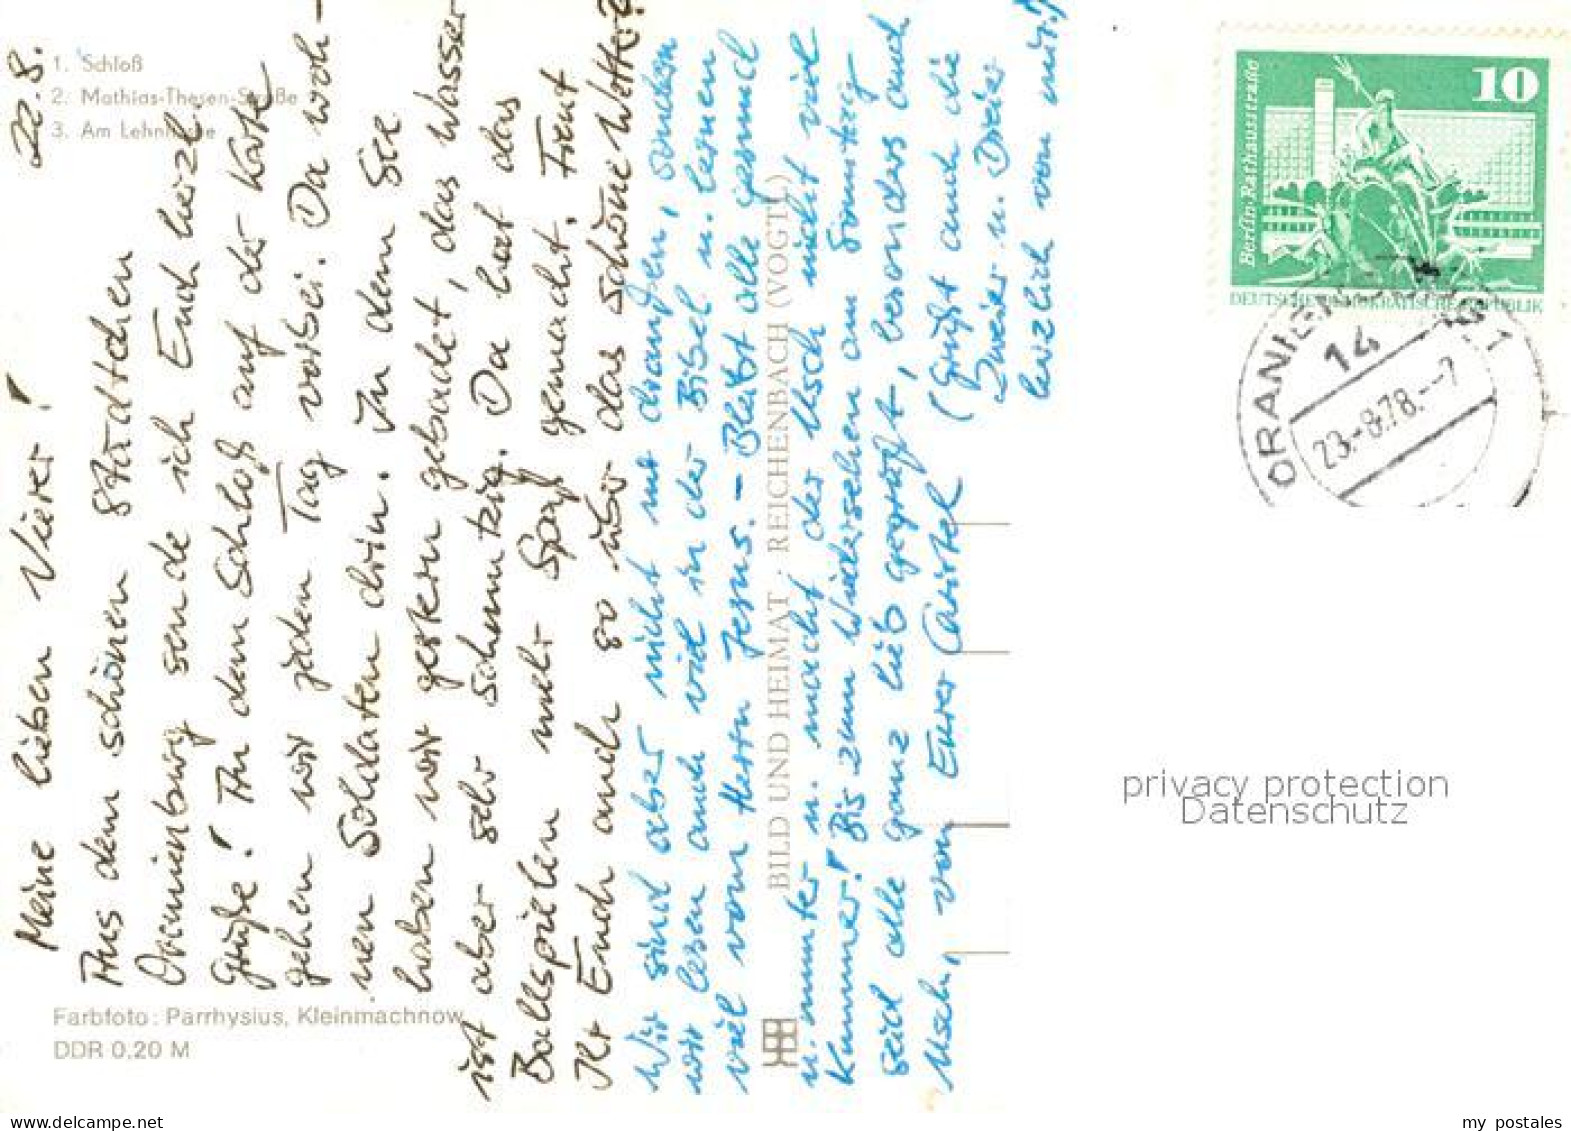 1. Schloß
2. Mathias-Thesen-Straße
3. Am Lehnitzsee
22.8.
Meine lieben Vierer!
Aus dem schönen Städtchen
Oranienburg sende ich Euch herzl
Grüße! An dem Schloß auf der Karte
gehen wir jeden Tag vorbei. Da woh-
nen Soldaten drin. In dem See
haben wir gestern gebadet, das Wasser
ist aber sehr schmutzig. Da hat das
Ballspielen mehr Spaß gemacht. Freut
Ihr Euch auch so über das schöne Wetter?
Wir sind aber nicht nur draußen, sondern
wir lesen auch viel in der Bibel u. lernen
viel vom Herrn Jesus. - Bleibt alle gesund
u. munter u. macht der Usch nicht viel
Kummer! Bis zum Wiedersehen am Sonntag
seid alle ganz lieb gegrüßt, besonders auch
Usch, von Eurer Christel (Grüßt auch die
Zweier u. Dreier
herzlich von mir!)
BILD UND HEIMAT · REICHENBACH (VOGTL)
Farbfoto: Parrhysius, Kleinmachnow
DDR 0,20 M
10
Berlin, Rathausstraße
DEUTSCHE DEMOKRATISCHE REPUBLIK
14
1
23.-8.78.--7
privacy protection
Datenschutz
my postales
www.delcampe.net